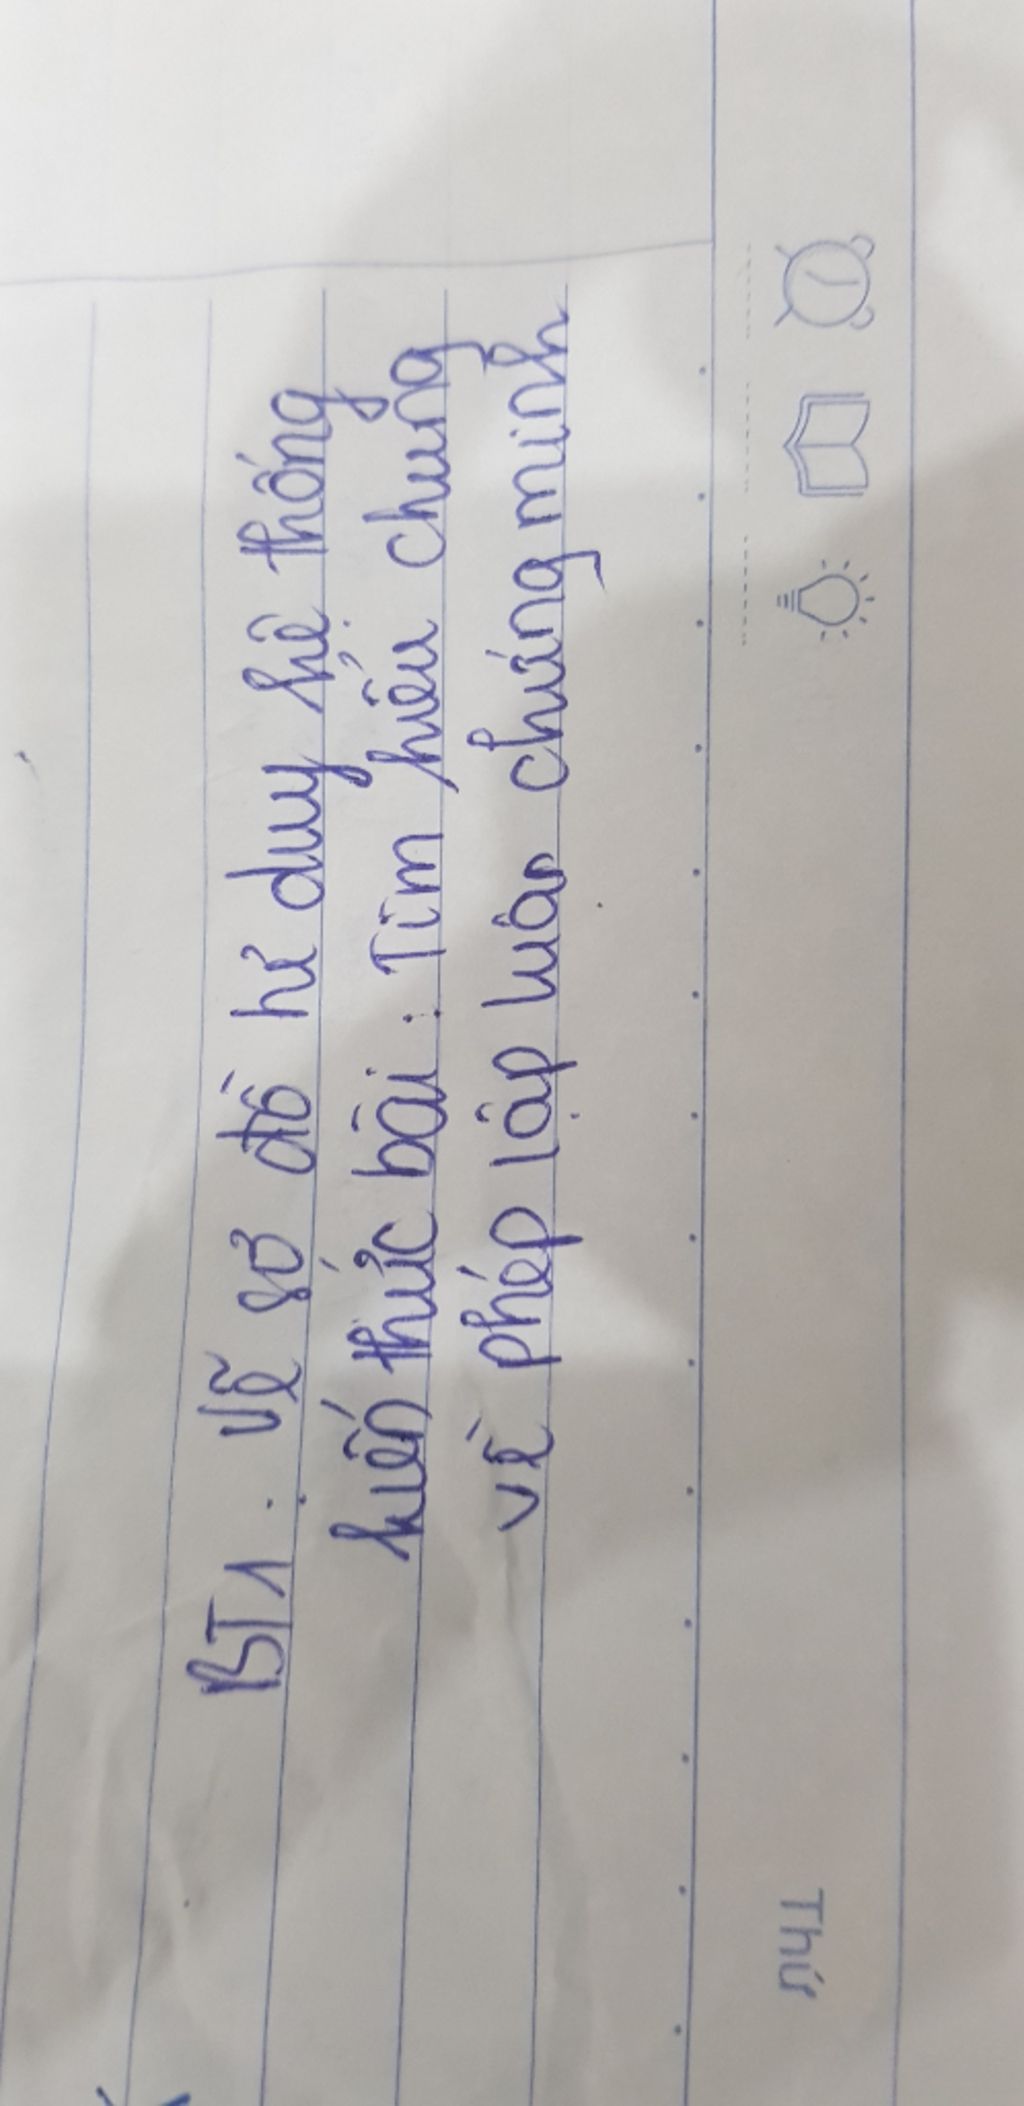 BT1: Vẽ sơ đồ tư duy hệ thống
kiến thức bài: Tìm hiểu chung
về phép lập luận chứng minh
Thứ